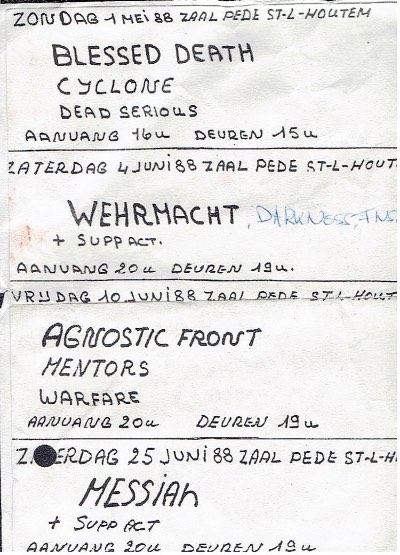 ZONDAG 1 MEI 88 ZAAL PEDE ST-L-HOUTEM
BLESSED DEATH
CYCLONE
DEAD SERIOUS
AANVANG 16u DEUREN 15u
ZATERDAG 4 JUNI 88 ZAAL PEDE ST-L-HOUT
WEHRMACHT, DARKNESS,
+ SUPP ACT.
AANVANG 20u DEUREN 19u.
VRIJDAG 10 JUNI 88 ZAAL PEDE ST-L-HOUT
AGNOSTIC FRONT
MENTORS
WARFARE
AANVANG 20u DEUREN 19u
Z ERDAG 25 JUNI 88 ZAAL PEDE ST-L-H
MESSIAH
+ SUPP ACT
AANVANG 20u DEUREN 19u